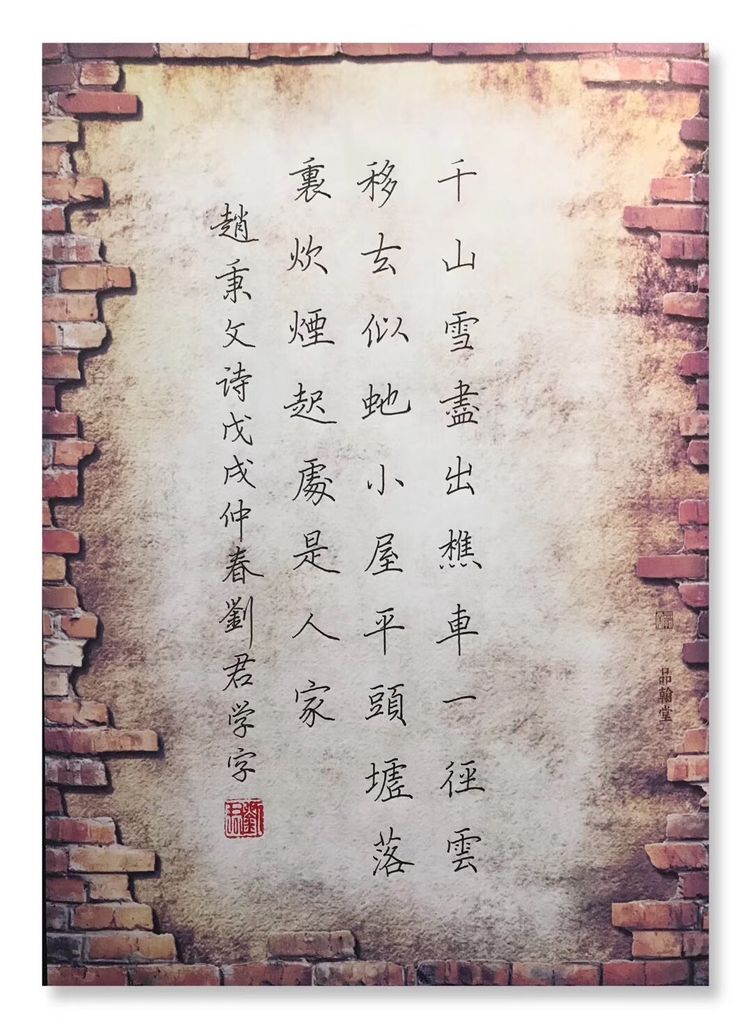 千山雪盡出樵車一徑雲
移玄似虵小屋平頭壚落
裏炊煙起處是人家
趙秉文诗戊戌仲春劉君学字
劉君
品翰堂